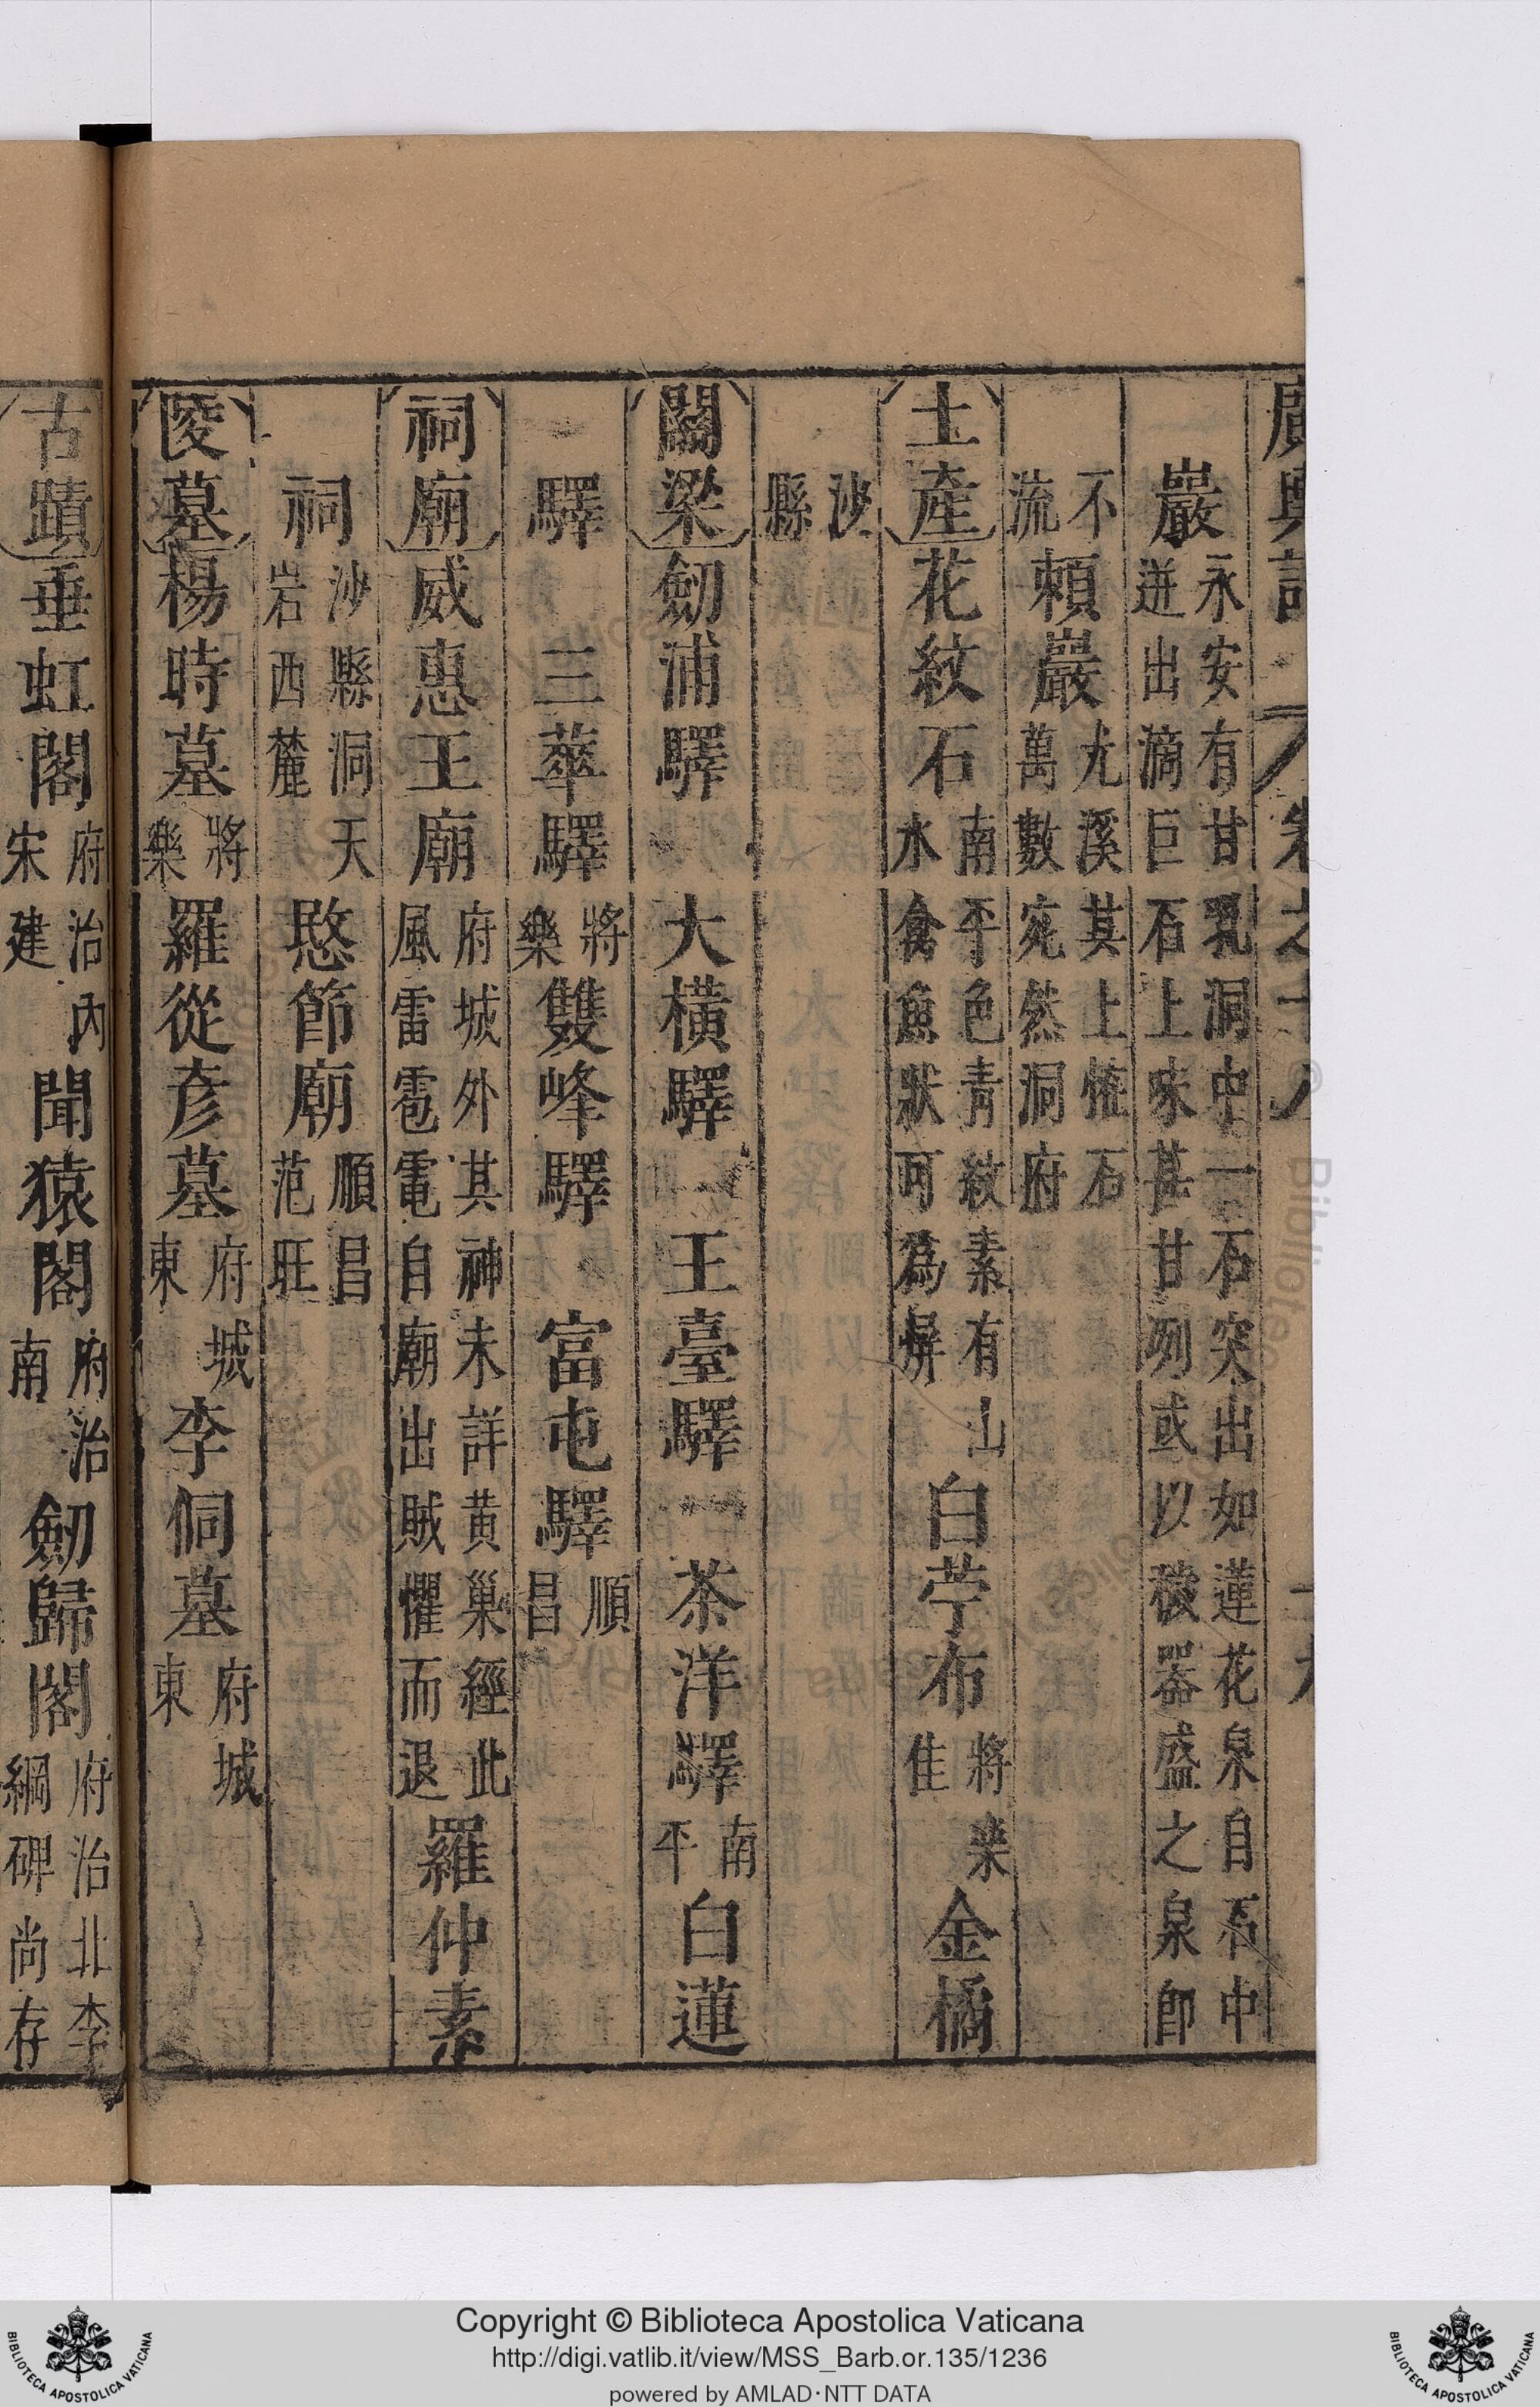 廣輿記 卷之十八
巖 永安有甘乳洞中一石突出如蓮花泉自石中迸出滴巨石上味甚甘冽或以穢器盛之泉卽
不流 頼巖 尤溪其上怪石萬數宛然洞府
土產 花紋石 南平色青紋素有山水禽魚狀可爲屏 白苧布 將楽佳 金橘
沙縣
關梁 劒浦驛 大橫驛 王臺驛 茶洋驛 南平 白蓮
驛 三華驛 將樂 雙峰驛 富屯驛 順昌
祠廟 威惠王廟 府城外其神未詳黃巢經此風雷雹電自廟出賊懼而退 羅仲素
祠 沙縣洞天岩西麓 愍節廟 順昌范旺
陵墓 楊時墓 將樂 羅從彥墓 府城東 李侗墓 府城東
古蹟 垂虹閣 府治內宋建 聞猿閣 府治南 劒歸閣 府治北李綱碑尚存
Copyright © Biblioteca Apostolica Vaticana
http://digi.vatlib.it/view/MSS_Barb.or.135/1236
powered by AMLAD·NTT DATA
BIBLIOTECA APOSTOLICA VATICANA
BIBLIOTECA APOSTOLICA VATICANA